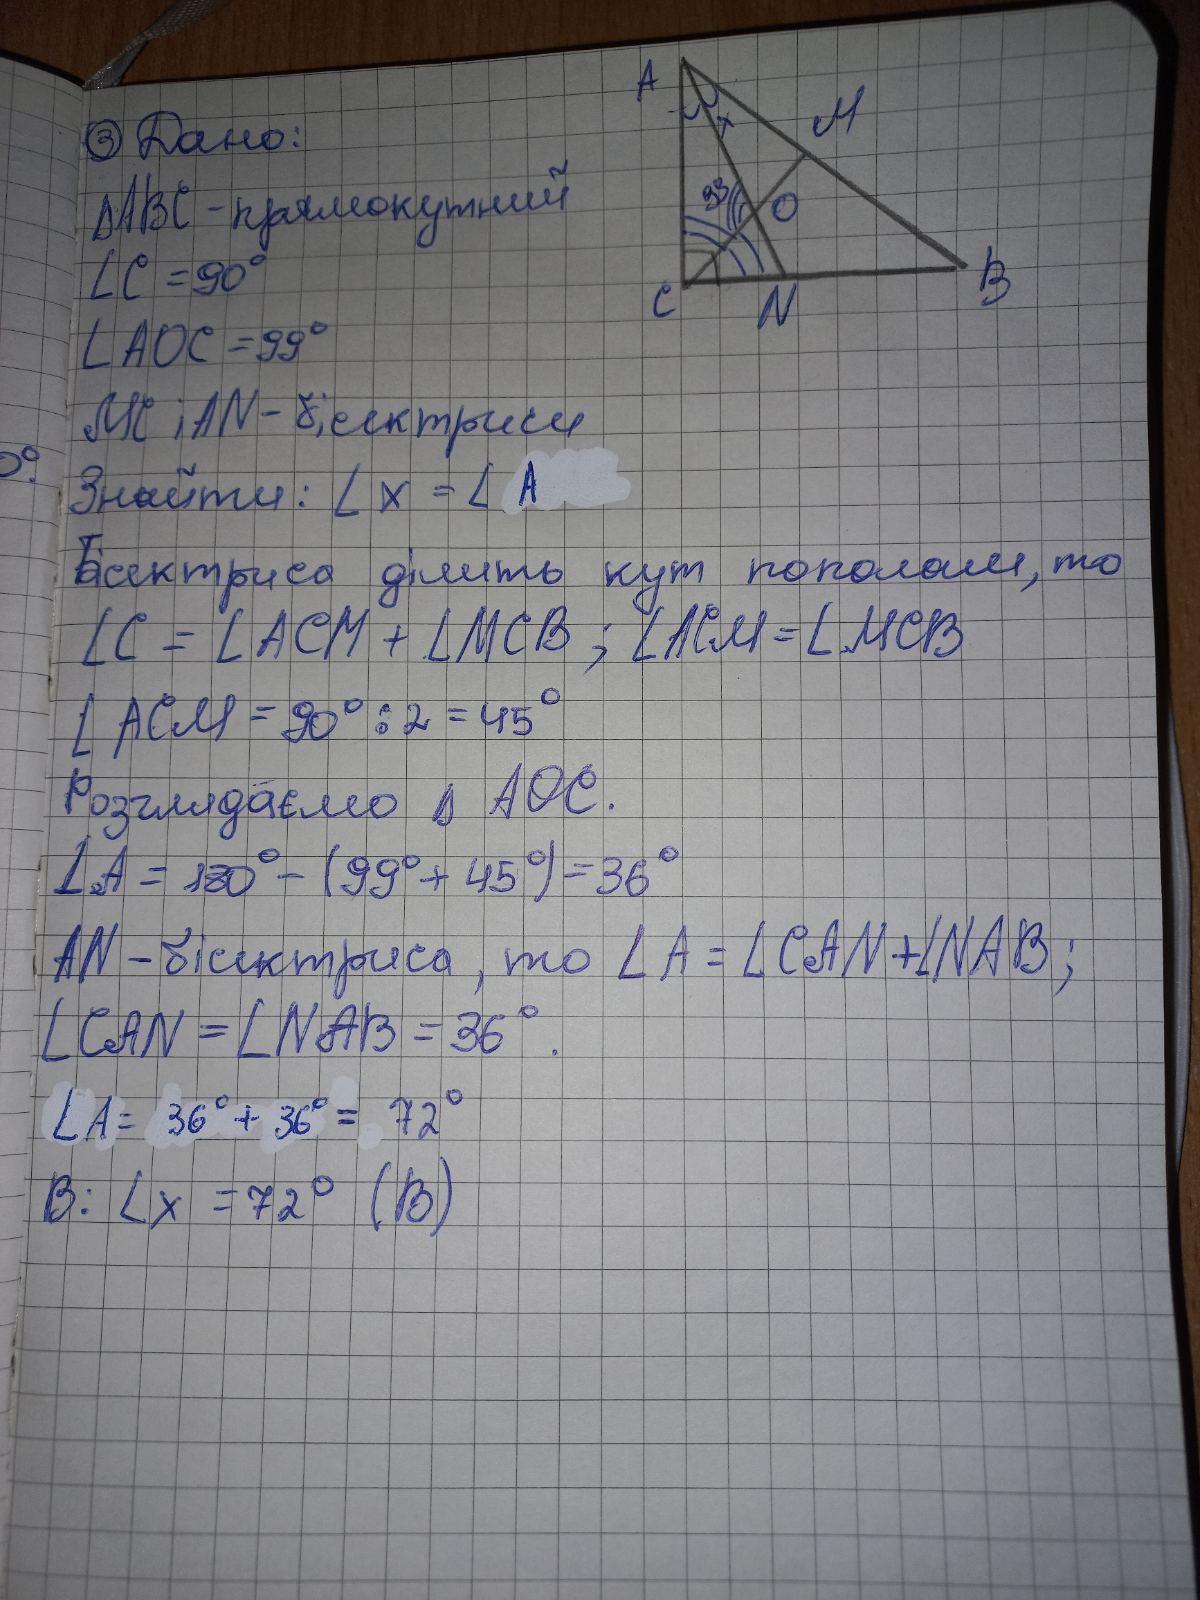 ③ Дано:
A
M
x
ΔABC - прямокутний
99
O
∠C = 90°
B
C
N
∠AOC = 99°
MC і AN - бісектриси
0°.
Знайти: ∠x = ∠ A
Бісектриса ділить кут пополам, то
∠C = ∠ACM + ∠MCB ; ∠ACM = ∠MCB
∠ACM = 90° : 2 = 45°
Розглядаємо Δ AOC.
∠A = 180° - (99° + 45°) = 36°
AN - бісектриса, то ∠A = ∠CAN + ∠NAB;
∠CAN = ∠NAB = 36°.
∠A = 36° + 36° = 72°
В: ∠x = 72° (В)